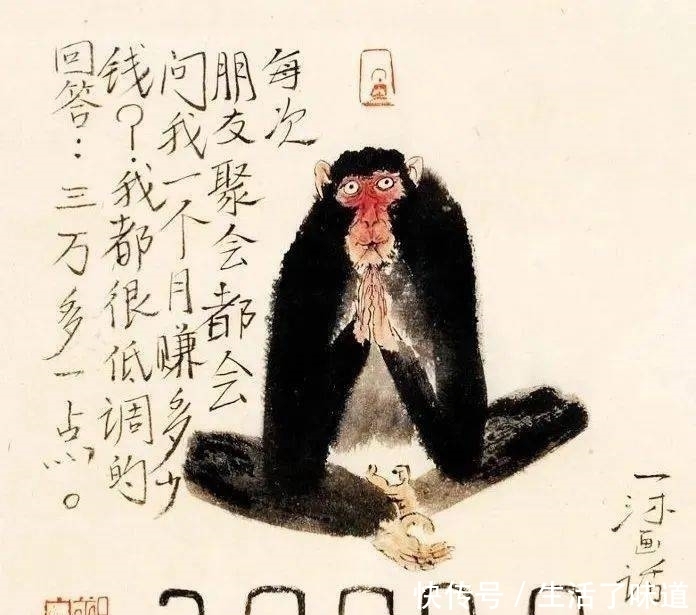 每次
朋友聚会都会
问我一个月赚多少
钱？我都很低调的
回答：三万多一点。
快传号 / 生活了味道